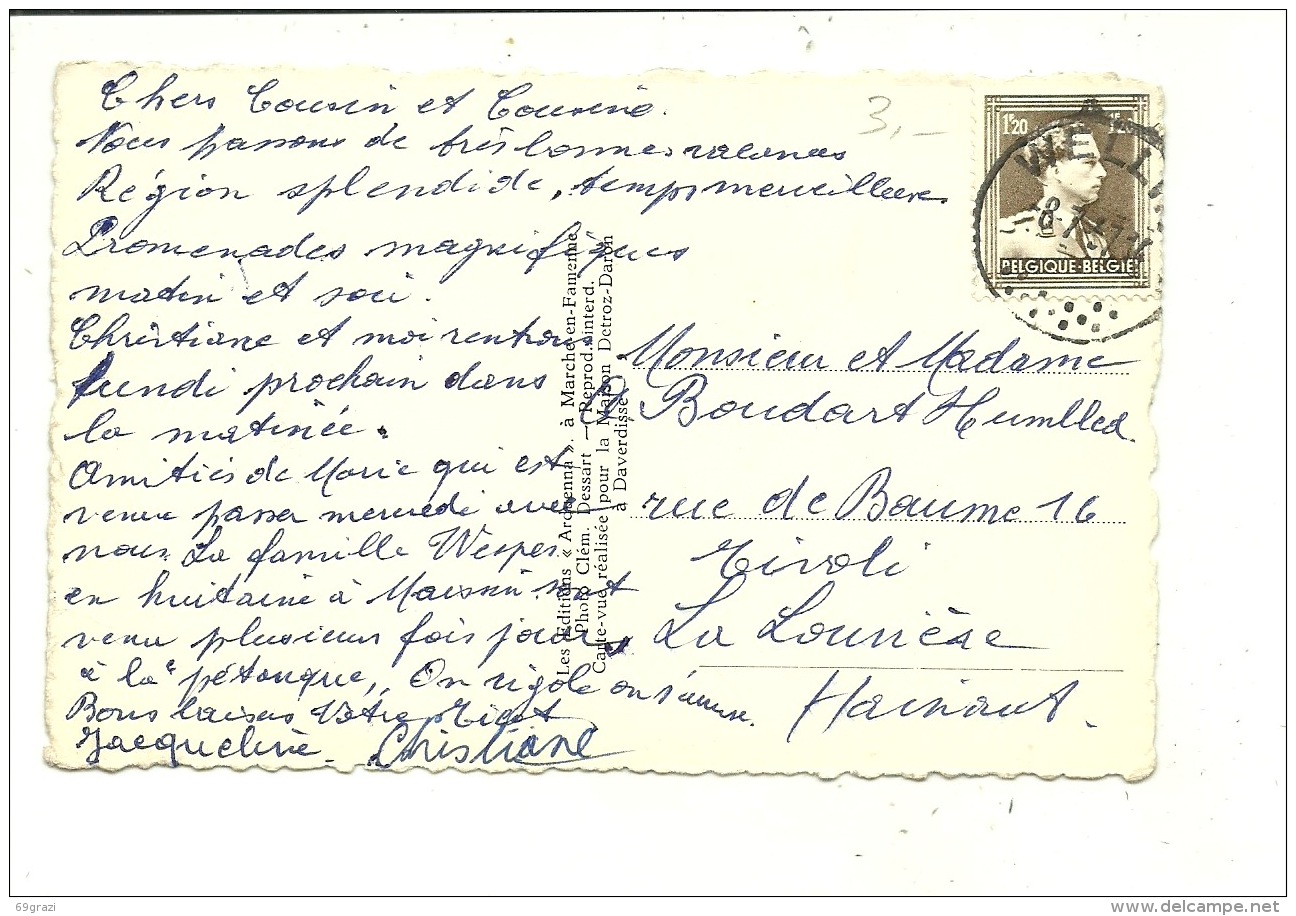 Chers Cousin et Cousine.
Nous passons de très bonnes vacances
Région splendide, temps merveilleux
Promenades magnifiques
matin et soir.
Christiane et moi rentrons
lundi prochain dans
la matinée.
Amitiés de Marie qui est
venue passer mercredi avec
nous. La famille Wesper
en huitaine à Maissin sont
venu plusieurs fois jouer
à la "pétanque". On rigole on s'amuse.
Bons baisers Votre
Jacqueline - Christiane
3,-
1F20 1F20
BELGIQUE-BELGIË
WELLIN
Les Editions « Ardenna », à Marche-en-Famenne
Photo Clém. Dessart — Reprod. interd.
Carte-vue réalisée pour la Maison Detroz-Daron
à Daverdisse
Monsieur et Madame
Boudart Humblet
rue de Baume 16
Tivoli
La Louvière
Hainaut.
69grazi
delcampe.net